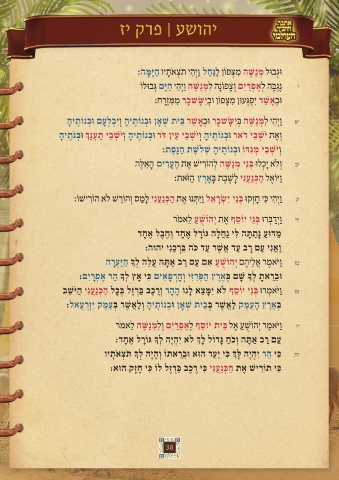 יהושע | פרק יז
אתנה
וּגְבוּל מְנַשֶּׁה מִצְּפוֹן לַנָּחַל וַיְהִי תֹצְאֹתָיו הַיָּמָּה:
י נֶגְבָּה לְאֶפְרַיִם וְצָפוֹנָה לִמְנַשֶּׁה וַיְהִי הַיָּם גְּבוּלוֹ
וּבְאָשֵׁר יִפְגְּעוּן מִצָּפוֹן וּבְיִשָּׂשכָר מִמִּזְרָח:
יא וַיְהִי לִמְנַשֶּׁה בְּיִשָּׂשכָר וּבְאָשֵׁר בֵּית שְׁאָן וּבְנוֹתֶיהָ וְיִבְלְעָם וּבְנוֹתֶיהָ
וְאֶת יֹשְׁבֵי דֹאר וּבְנוֹתֶיהָ וְיֹשְׁבֵי עֵין דֹּר וּבְנוֹתֶיהָ וְיֹשְׁבֵי תַעְנַךְ וּבְנוֹתֶיהָ
וְיֹשְׁבֵי מְגִדּוֹ וּבְנוֹתֶיהָ שְׁלֹשֶׁת הַנָּפֶת:
יב וְלֹא יָכְלוּ בְּנֵי מְנַשֶּׁה לְהוֹרִישׁ אֶת הֶעָרִים הָאֵלֶּה
וַיּוֹאֶל הַכְּנַעֲנִי לָשֶׁבֶת בָּאָרֶץ הַזֹּאת:
יג וַיְהִי כִּי חָזְקוּ בְּנֵי יִשְׂרָאֵל וַיִּתְּנוּ אֶת הַכְּנַעֲנִי לָמַס וְהוֹרֵשׁ לֹא הוֹרִישׁוֹ:
יד וַיְדַבְּרוּ בְּנֵי יוֹסֵף אֶת יְהוֹשֻׁעַ לֵאמֹר
מַדּוּעַ נָתַתָּה לִּי נַחֲלָה גּוֹרָל אֶחָד וְחֶבֶל אֶחָד
וַאֲנִי עַם רָב עַד אֲשֶׁר עַד כֹּה בֵּרְכַנִי יהוה:
טו וַיֹּאמֶר אֲלֵיהֶם יְהוֹשֻׁעַ אִם עַם רַב אַתָּה עֲלֵה לְךָ הַיַּעְרָה
וּבֵרֵאתָ לְךָ שָׁם בְּאֶרֶץ הַפְּרִזִּי וְהָרְפָאִים כִּי אָץ לְךָ הַר אֶפְרָיִם:
טז וַיֹּאמְרוּ בְּנֵי יוֹסֵף לֹא יִמָּצֵא לָנוּ הָהָר וְרֶכֶב בַּרְזֶל בְּכָל הַכְּנַעֲנִי הַיֹּשֵׁב
בְּאֶרֶץ הָעֵמֶק לַאֲשֶׁר בְּבֵית שְׁאָן וּבְנוֹתֶיהָ וְלַאֲשֶׁר בְּעֵמֶק יִזְרְעֶאל:
יז וַיֹּאמֶר יְהוֹשֻׁעַ אֶל בֵּית יוֹסֵף לְאֶפְרַיִם וְלִמְנַשֶּׁה לֵאמֹר
עַם רַב אַתָּה וְכֹחַ גָּדוֹל לָךְ לֹא יִהְיֶה לְךָ גּוֹרָל אֶחָד:
יח כִּי הַר יִהְיֶה לָּךְ כִּי יַעַר הוּא וּבֵרֵאתוֹ וְהָיָה לְךָ תֹּצְאֹתָיו
כִּי תוֹרִישׁ אֶת הַכְּנַעֲנִי כִּי רֶכֶב בַּרְזֶל לוֹ כִּי חָזָק הוּא:
38